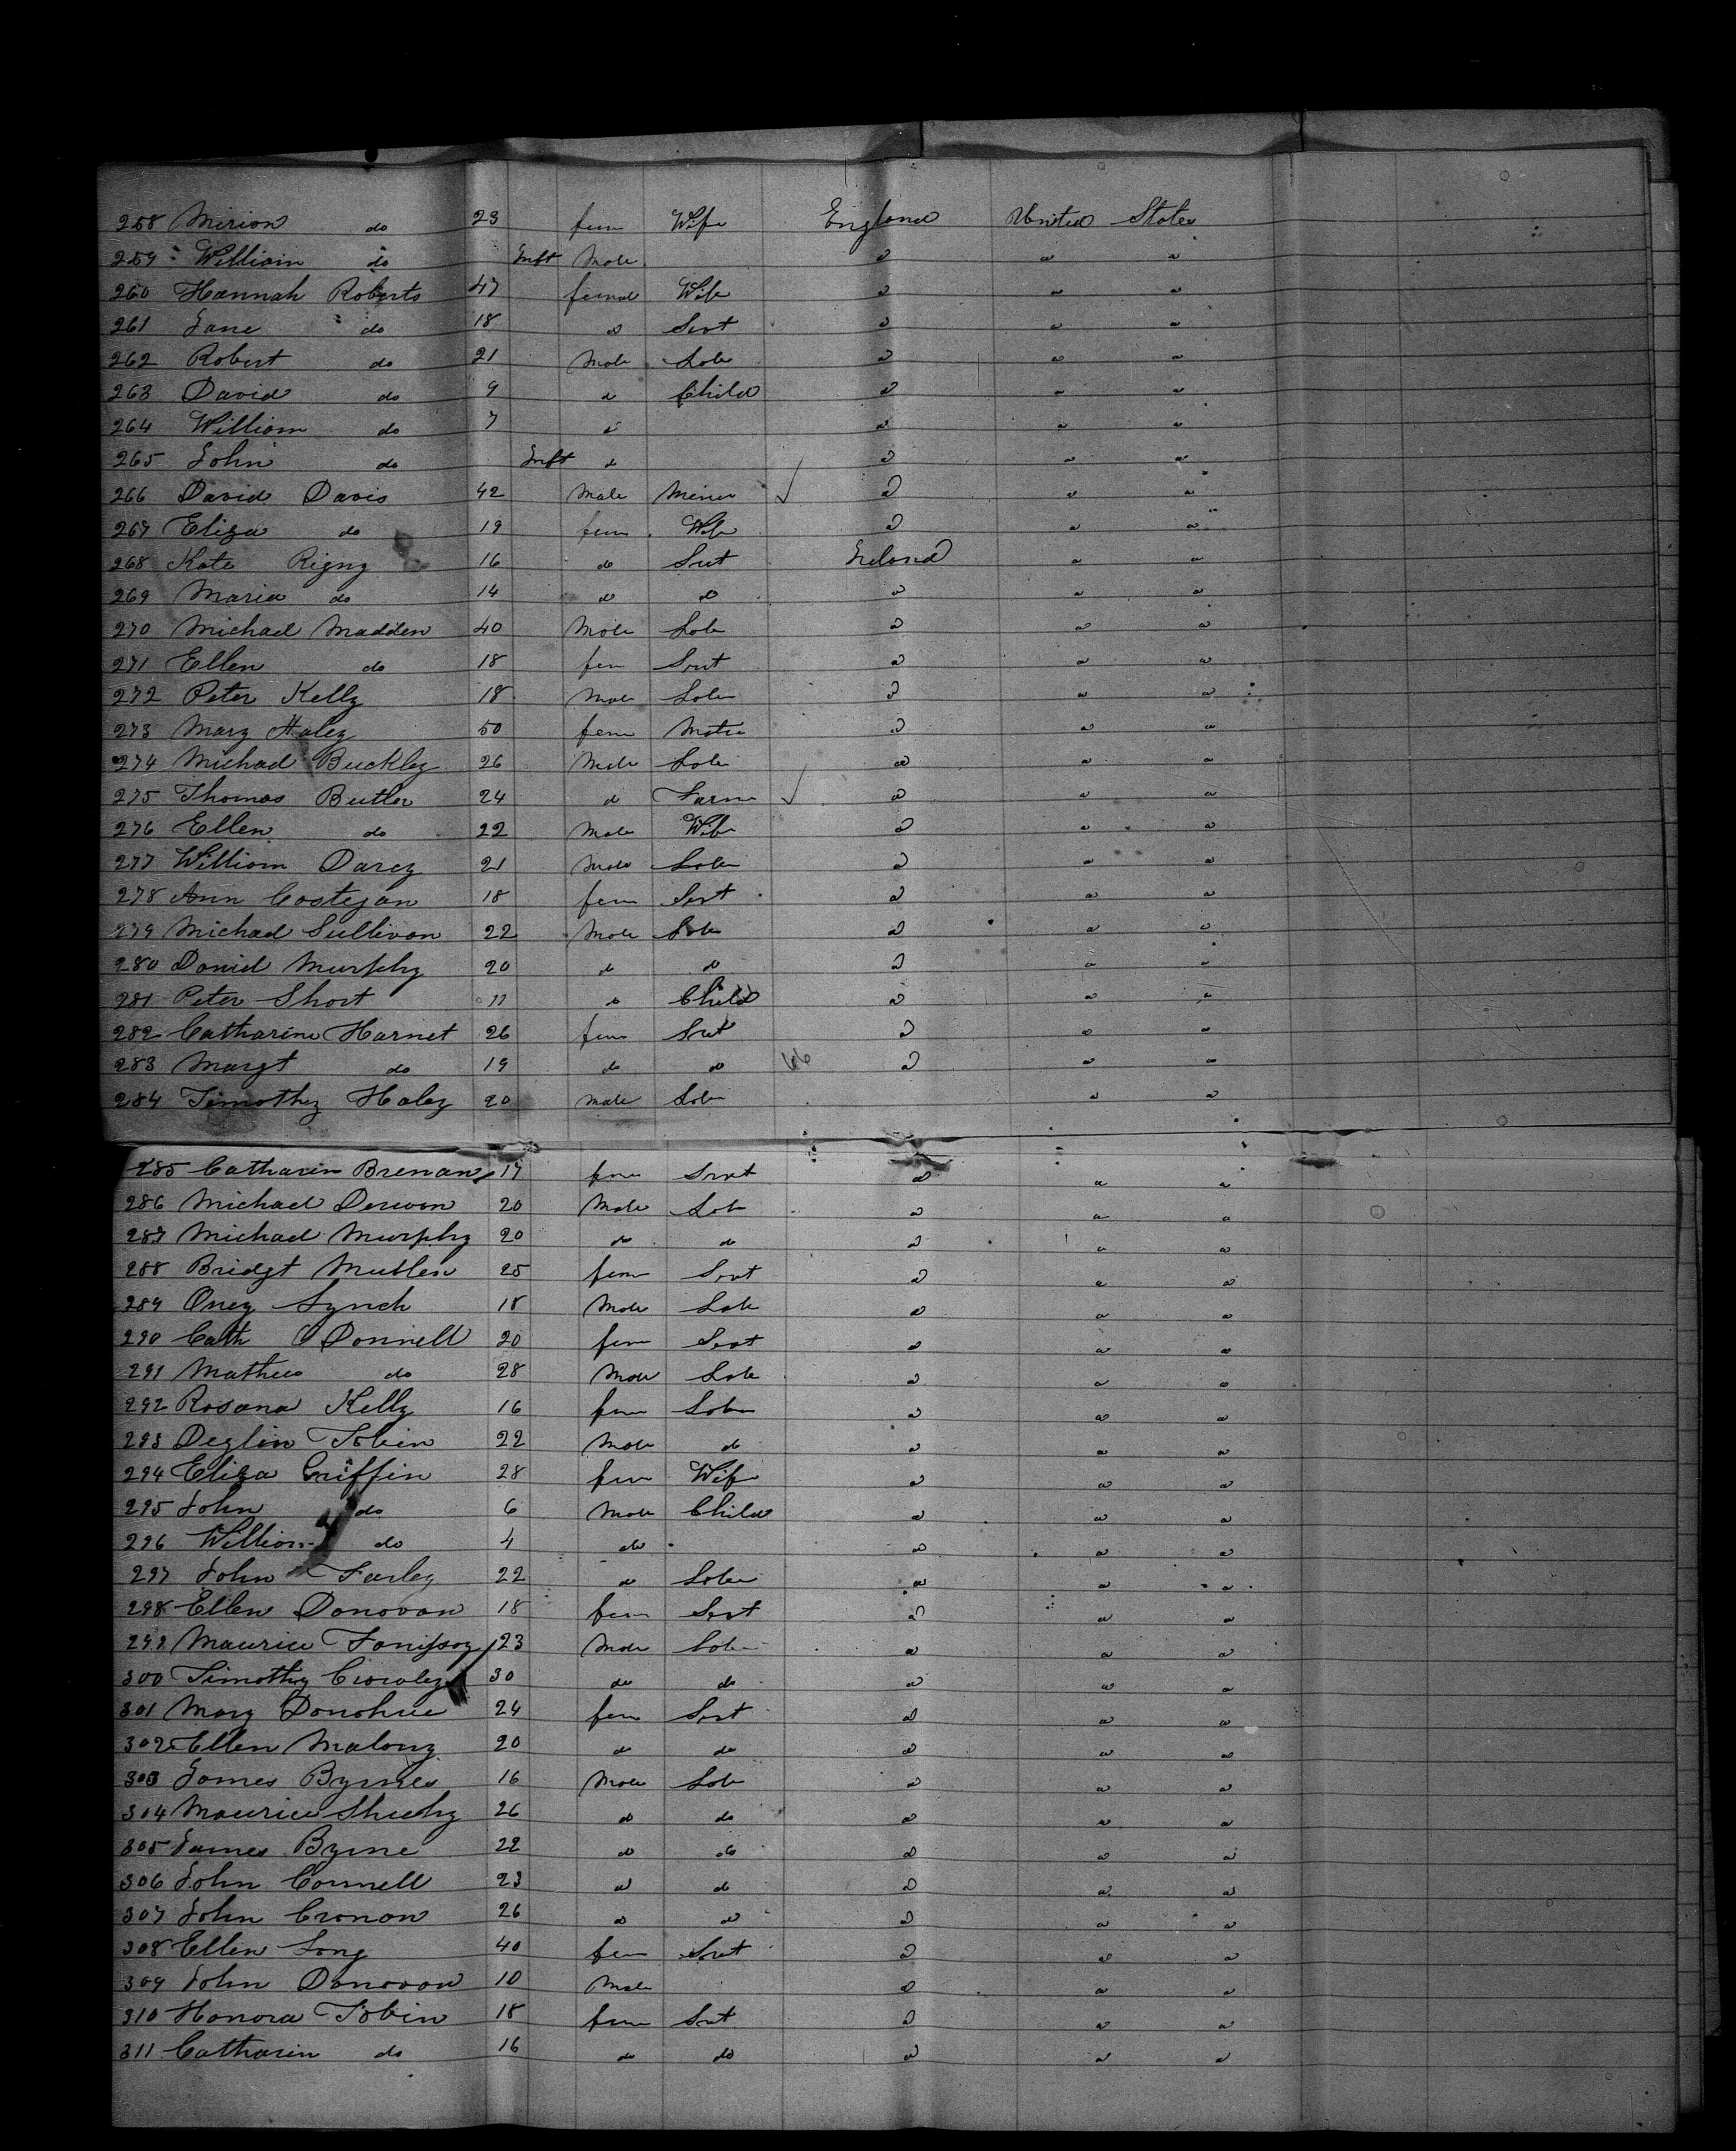 258 Mirion do 23 fem Wife England United States
259 William do Inft Male do " "
260 Hannah Roberts 47 femal Wife do " "
261 Jane do 18 do Sert do " "
262 Robert do 21 Male Labr do " "
263 David do 9 do Child do " "
264 William do 7 do do " "
265 John do Inft do do " "
266 David Davis 42 Male Miner do " "
267 Eliza do 19 fem Wife do " "
268 Kate Rigny 16 do Sert Ireland " "
269 Maria do 14 do do do " "
270 Michael Madden 40 Male Labr do " "
271 Ellen do 18 fem Srvt do " "
272 Peter Kelly 18 Male Labr do " "
273 Mary Haley 50 fem Matrn do " "
274 Michael Buckley 26 Male Labr do " "
275 Thomas Butler 24 do Farm do " "
276 Ellen do 22 Male Wife do " "
277 William Darcy 21 Male Labr do " "
278 Ann Costegan 18 fem Sert do " "
279 Michael Sullivan 22 Male Labr do " "
280 Daniel Murphy 20 do do do " "
281 Peter Short 11 do Child do " "
282 Catharine Harnet 26 fem Srvt do " "
283 Margt do 19 do do do " "
284 Timothy Haley 20 Male Labr " "
285 Catharin Brenan 17 fem Srvt do " "
286 Michael 20 Male Labr do " "
287 Michael Murphy 20 do do do " "
288 Bridgt Mullen 25 fem Srvt do " "
289 Oney Lynch 18 Male Labr do " "
290 Cath O Donnell 20 fem Srvt do " "
291 Mathew do 28 Male Labr do " "
292 Rosana Kelly 16 fem Labr do " "
293 Deglin Tobin 22 Male do do " "
294 Eliza Griffin 28 fem Wife do " "
295 John do 6 Male Child do " "
296 William do 4 do do " "
297 John Farley 22 do Labr do " "
298 Ellen Donovan 18 fem Sert do " "
299 Maurice 23 Male Labr do " "
300 Timothy Crowley 30 do do do " "
301 Mary Donohue 24 fem Sert do " "
302 Ellen Malony 20 do do do " "
303 James Byrnes 16 Male Labr do " "
304 Maurice Shuhy 26 do do do " "
305 James Byrne 22 do do do " "
306 John Connell 23 do do do " "
307 John Cronan 26 do do do " "
308 Ellen Long 40 fem Srvt do " "
309 John Donovan 10 Male do " "
310 Honora Tobin 18 fem Srvt do " "
311 Catharin do 16 do do do " "